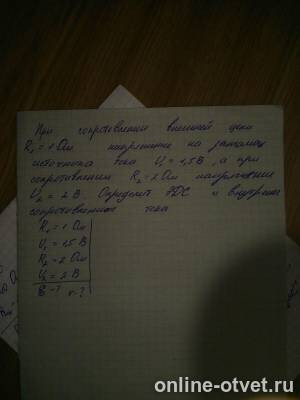 При сопротивлении внешней цепи
R₁ = 1 Ом напряжение на зажимах
источника тока U₁ = 1,5 В, а при
сопротивлении R₂ = 2 Ом напряжение
U₂ = 2 В. Определит ЭДС и внутрене
сопротивление тока
R₁ = 1 Ом
U₁ = 1,5 В
R₂ = 2 Ом
U₂ = 2 В
ε - ? r - ?
online-otvet.ru